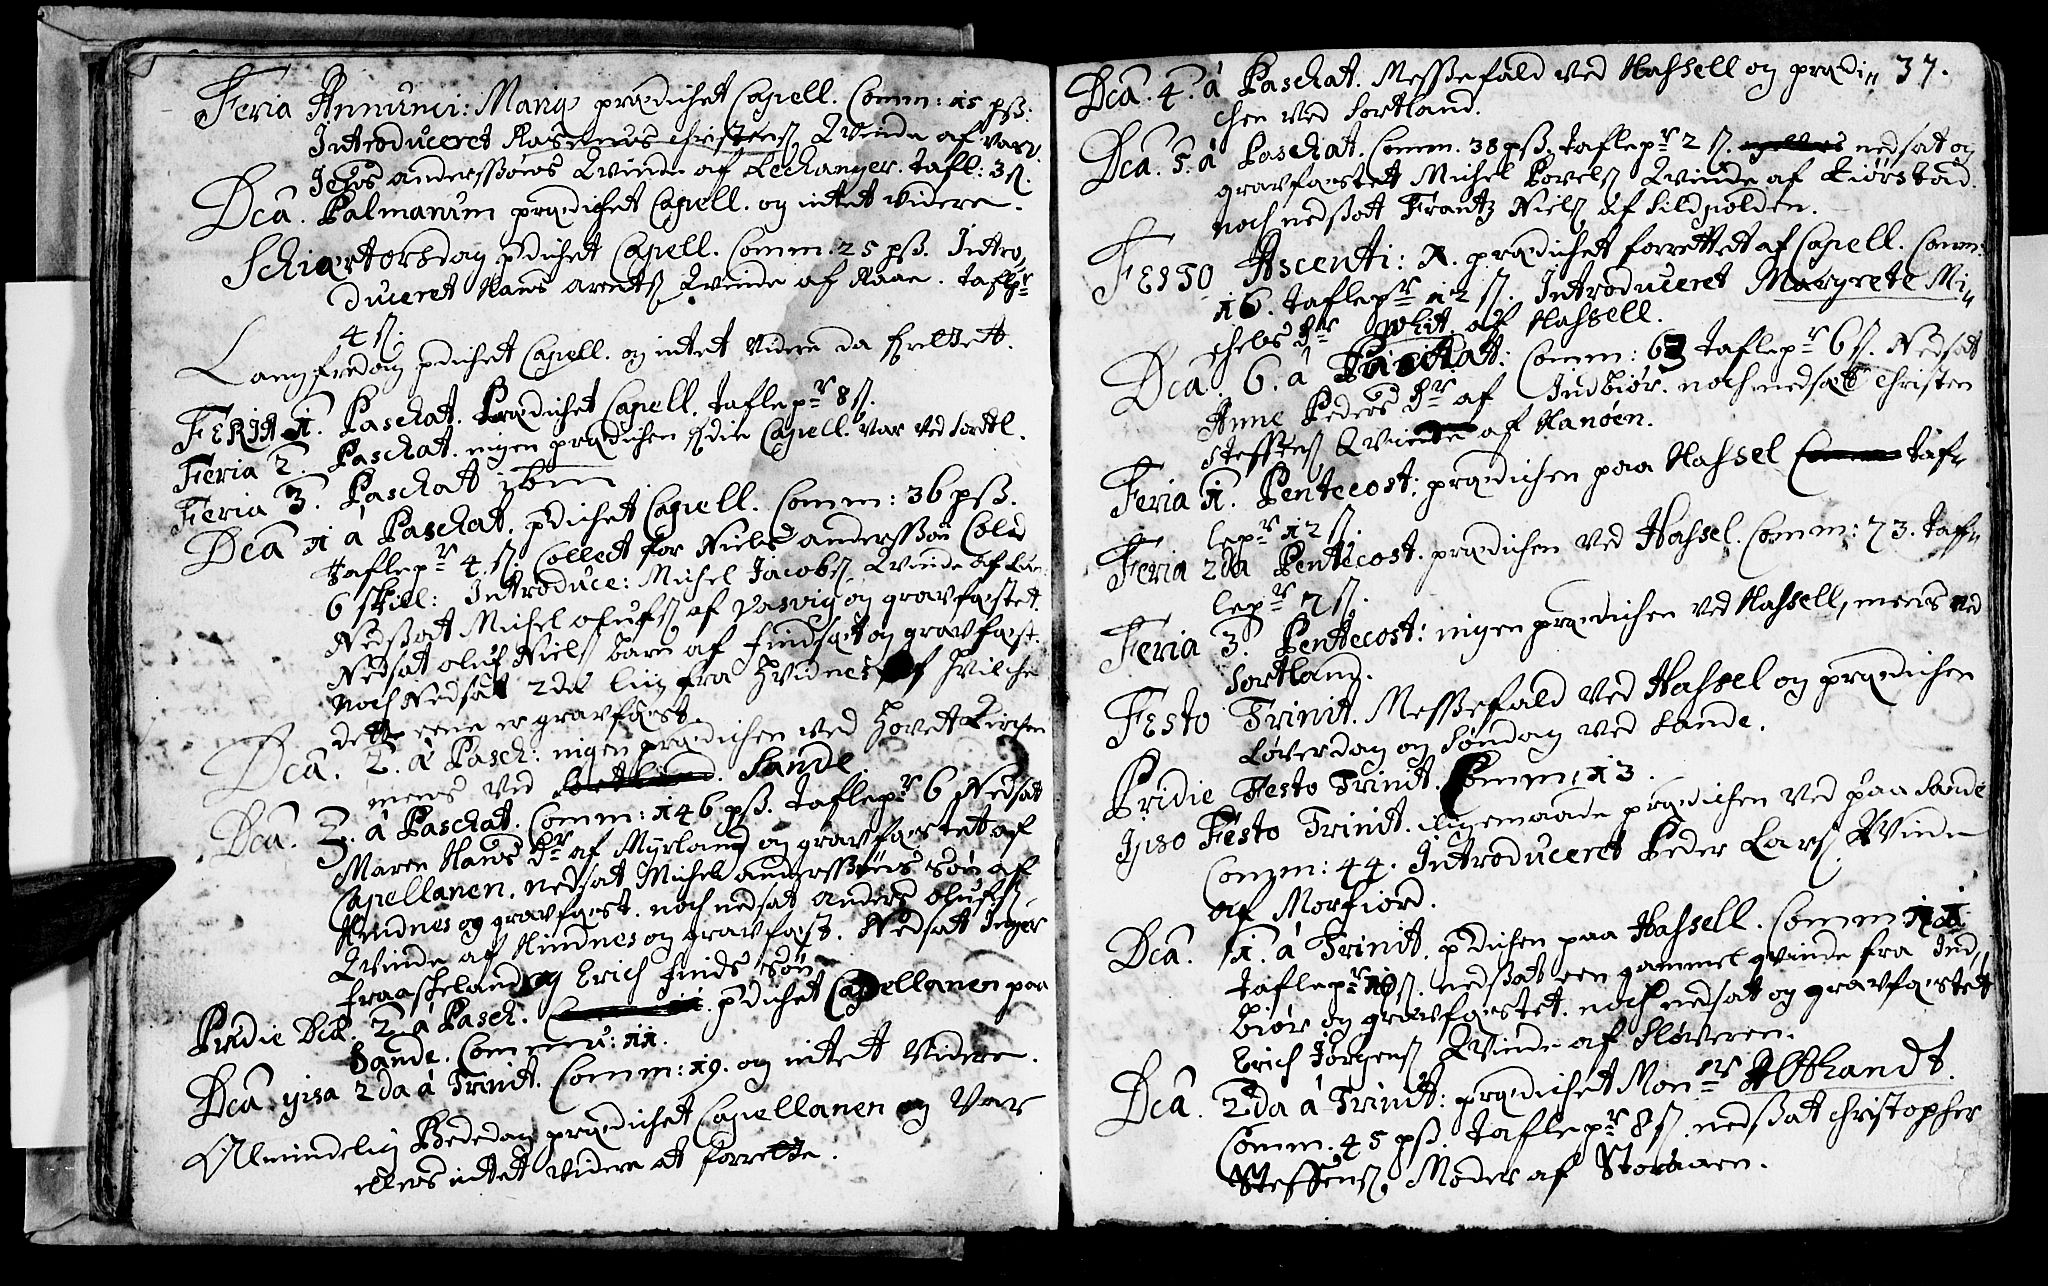 Feria Annunci: Mariæ prædichet Capell. Comm: 15 psß.
Introduceret Rasmus Christens Qvinde af
Jens anderssøns Qvinde af Lechanger. tafl: 3 ß.
Dca. Palmarum prædichet Capell. og intet videre.
Schiærtorsdag p'dichet Capell. Comm. 25 psß. Intro,
duceret Hans arents Qvinde af Raae. taflp
4 ß.
Langfredag p'dichet Capell. og intet videre da
FERIA 1. Paschat. Prædichet Capell. taflepr 8 ß.
Feria 2. Paschat. ingen prædichen Capell. var ved Sortl.
Feria 3. Paschat ibm
Dca 1 á Paschat. p'dichet Capell. Comm: 36 psß.
taflepr 4. ß. Collect for Niels anderssøn Cold
6 skill: Introduce: Michel Jacobs Qvinde af
Nedsat Michel olufs af Vasvig og gravfæstet.
Nedsat oluf Niels barn af findsæt og gravfæst.
noch Nedsat 2de liig fra Hvidnes af hvilche
dett eene er gravfæst.
Dca. 2. á Pasch: ingen prædichen ved Hovetkirchen
mens ved Sortland. Sande.
Dca. 3. á Paschat. Comm: 146 psß. taflepr 6 Nedsat
Maren Hans dr af Myrland og gravfæstet af
Capellanen. nedsat Michel anderssøns søn af
Hindnes og gravfæst. noch nedsat anders olufs
Qvinde af Hindnes og gravfæst. Nedsat Inger
fra askeland og Erich finds søn
Pridie Dca. 2. á Pasch. p'dichet Capellanen paa
Sande. Commu: 11.
Dca. ipsa 2da á Trinit. Comm: 19. og intet videre.
Almindelig Bededag prædichet Capellanen og var
ellers intet videre at forrette.
37.
Dca. 4. á Paschat. Messefald ved Hassell og prædi„
chen ved Sortland.
Dca. 5. á Paschat. Comm. 38 psß. taflepr 2 ß. nedsat og
gravfæstet Michel Povels Qvinde af Kiørstad.
noch nedsat Frantz Niels af Sildpolden.
FESTO Ascenti: X. prædichet forrettet af Capell. Comm:
16. taflepr 12 ß. Introduceret Margrete Mi„
chels dr af Hassell.
Dca. 6. á Paschat: Comm: 63 taflepr 6 ß. Nedsat
Anne Peders dr af Indbiør. noch nedsat Christen
Steffens Qvinde af Hanøen.
Feria 1. Pentecost: prædichen paa Hassel Comm taf„
lepr 12 ß.
Feria 2da Pentecost. prædichen ved Hassel. Comm: 73. taf„
lepr 7 ß.
Feria 3. Pentecost: ingen prædichen ved Hassell, mens ved
Sortland.
Festo Trinit. Messefald ved Hassel og prædichen
Løverdag og Søndag ved Sande.
Pridie Festo Trinit. Comm, 13.
Ipso Festo Trinit. iligemaade prædichen ved paa Sande
Comm: 44. Introduceret Peder Lars Qvinde
af Morfiord.
Dca. 1. á Trinit. p'dichen paa Hassell. Comm
taflepr 10 ß. nedsat een gammel qvinde fra Ind„
biør og gravfæstet. noch nedsat og gravfæstet
Erich Jørgens Qvinde af Sløveren.
Dca. 2da á Trinit: prædichet Monsr
Comm. 45 psß. taflepr 8 ß. nedsat Christopher
Steffens Moder af Storaaen.